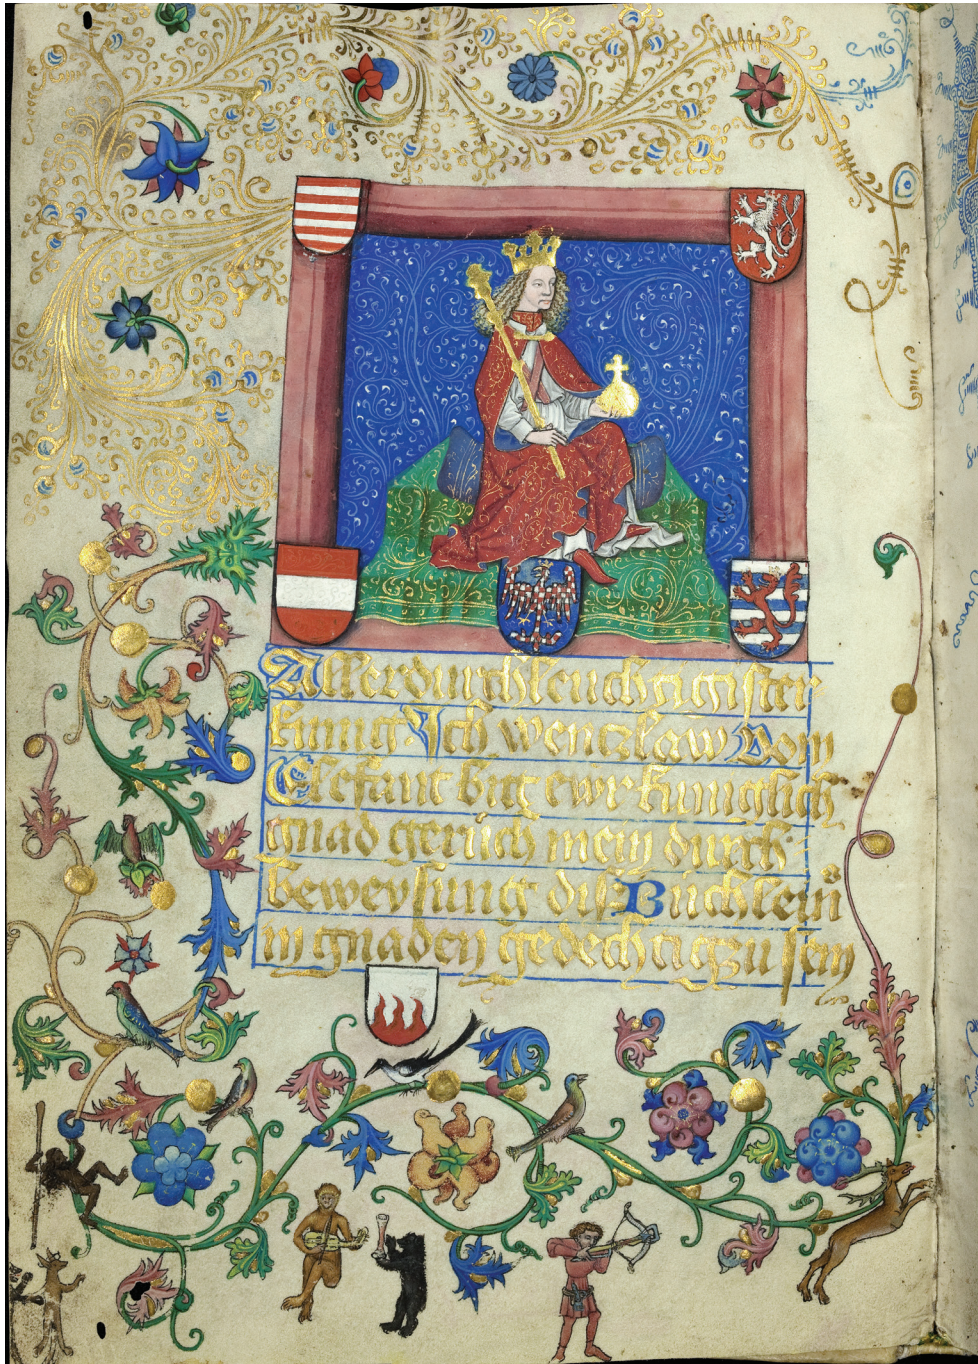 Allerdurchleuchtigister
kunig Ich wenczlaw Vom
Elefant bitt ewr kuniglich
gnad geruch mein durch
beweysung diss Büchlein
in gnaden gedechtig zu sein